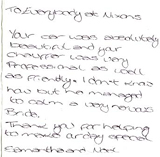 To Everybody at Nixons
Your car was absolutely
beautiful and your
chauffeur was very
professional as well
as friendly. I don't know
how but he managed
to calm a very nervous
bride.
Thank you for helping
to make our day special
Samantha and Neil.